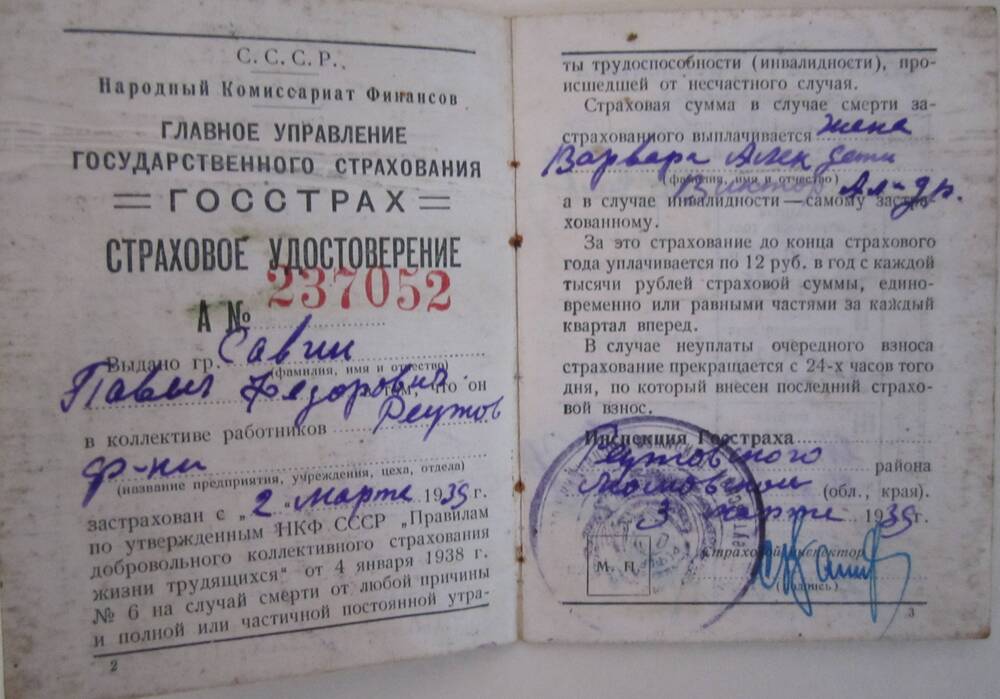 С. С. С. Р.
Народный Комиссариат Финансов
ГЛАВНОЕ УПРАВЛЕНИЕ
ГОСУДАРСТВЕННОГО СТРАХОВАНИЯ
ГОССТРАХ
СТРАХОВОЕ УДОСТОВЕРЕНИЕ
А № 237052
Выдано гр. Савин
(фамилия, имя и отчество)
Павел Федорович в том, что он
в коллективе работников Реутов
ф-ки
(название предприятия, учреждения, цеха, отдела)
застрахован с „2" марта 1939 г.
по утвержденным НКФ СССР „Правилам
добровольного коллективного страхования
жизни трудящихся" от 4 января 1938 г.
№ 6 на случай смерти от любой причины
и полной или частичной постоянной утра-
2
ты трудоспособности (инвалидности), про-
исшедшей от несчастного случая.
Страховая сумма в случае смерти за-
страхованного выплачивается жена
Варвара Алек дети
(фамилия, имя и отчество)
Ал-др.
а в случае инвалидности — самому застра-
хованному.
За это страхование до конца страхового
года уплачивается по 12 руб. в год с каждой
тысячи рублей страховой суммы, едино-
временно или равными частями за каждый
квартал вперед.
В случае неуплаты очередного взноса
страхование прекращается с 24-х часов того
дня, по который внесен последний страхо-
вой взнос.
Инспекция Госстраха
Реутовского района
Московской (обл., края).
3 марта 1939 г.
Страховой инспектор
М. П.
(подпись)
3